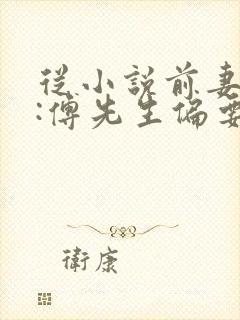 從小說前妻
:傅先生偏要
衛康